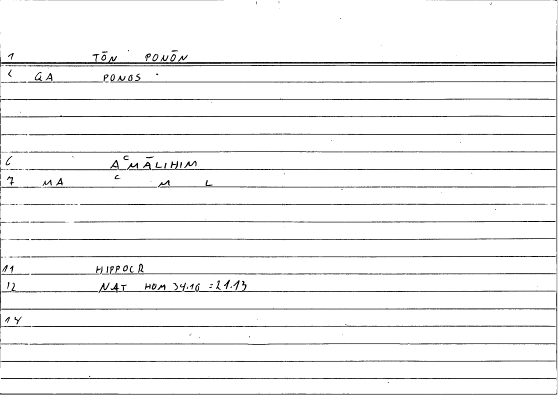 1 TŌN PONŌN
2 GA PONOS
6 AᶜMĀLIHIM
7 MA ᶜ M L
11 HIPPOCR
12 NAT HOM 34.16 = 21.13
14